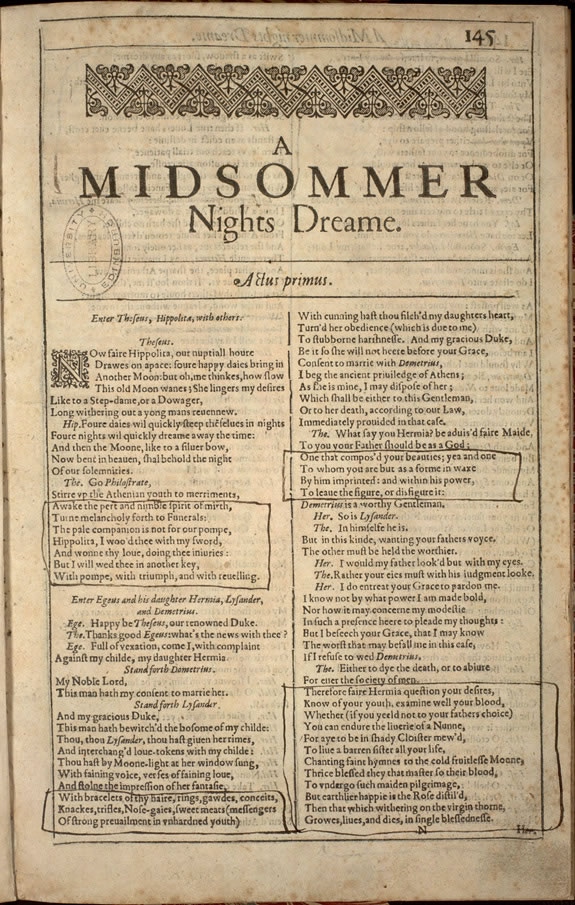 145
A
MIDSOMMER
Nights Dreame.
Actus primus.
Enter Theseus, Hippolita, with others.
Theseus.
NOw faire Hippolita, our nuptiall houre
Drawes on apace: foure happy daies bring in
Another Moon: but oh, me thinkes, how slow
This old Moon wanes; She lingers my desires
Like to a Step-dame, or a Dowager,
Long withering out a yong mans reuennew.
Hip. Foure daies wil quickly steep thēselues in nights
Foure nights wil quickly dreame away the time:
And then the Moone, like to a siluer bow,
Now bent in heauen, shal behold the night
Of our solemnities.
The. Go Philostrate,
Stirre vp the Athenian youth to merriments,
Awake the pert and nimble spirit of mirth,
Turne melancholy forth to Funerals:
The pale companion is not for our pompe,
Hippolita, I woo'd thee with my sword,
And wonne thy loue, doing thee iniuries:
But I will wed thee in another key,
With pompe, with triumph, and with reuelling.
Enter Egeus and his daughter Hermia, Lysander,
and Demetrius.
Ege. Happy be Theseus, our renowned Duke.
The. Thanks good Egeus: what's the news with thee?
Ege. Full of vexation, come I, with complaint
Against my childe, my daughter Hermia.
Stand forth Demetrius.
My Noble Lord,
This man hath my consent to marrie her.
Stand forth Lysander.
And my gracious Duke,
This man hath bewitch'd the bosome of my childe:
Thou, thou Lysander, thou hast giuen her rimes,
And interchang'd loue-tokens with my childe:
Thou hast by Moone-light at her window sung,
With faining voice, verses of faining loue,
And stolne the impression of her fantasie,
With bracelets of thy haire, rings, gawdes, conceits,
Knackes, trifles, Nose-gaies, sweet meats (messengers
Of strong preuailment in vnhardned youth)
With cunning hast thou filch'd my daughters heart,
Turn'd her obedience (which is due to me)
To stubborne harshnesse. And my gracious Duke,
Be it so she will not heere before your Grace,
Consent to marrie with Demetrius,
I beg the ancient priuiledge of Athens;
As she is mine, I may dispose of her;
Which shall be either to this Gentleman,
Or to her death, according to our Law,
Immediately prouided in that case.
The. What say you Hermia? be aduis'd faire Maide,
To you your Father should be as a God;
One that compos'd your beauties; yea and one
To whom you are but as a forme in waxe
By him imprinted: and within his power,
To leaue the figure, or disfigure it:
Demetrius is a worthy Gentleman.
Her. So is Lysander.
The. In himselfe he is.
But in this kinde, wanting your fathers voyce.
The other must be held the worthier.
Her. I would my father look'd but with my eyes.
The. Rather your eies must with his iudgment looke.
Her. I do entreat your Grace to pardon me.
I know not by what power I am made bold,
Nor how it may concerne my modestie
In such a presence heere to pleade my thoughts:
But I beseech your Grace, that I may know
The worst that may befall me in this case,
If I refuse to wed Demetrius.
The. Either to dye the death, or to abiure
For euer the society of men.
Therefore faire Hermia question your desires,
Know of your youth, examine well your blood,
Whether (if you yeeld not to your fathers choice)
You can endure the liuerie of a Nunne,
For aye to be in shady Cloister mew'd,
To liue a barren sister all your life,
Chanting faint hymnes to the cold fruitlesse Moone,
Thrice blessed they that master so their blood,
To vndergo such maiden pilgrimage,
But earthlier happie is the Rose distil'd,
Then that which withering on the virgin thorne,
Growes, liues, and dies, in single blessednesse.
N Her.